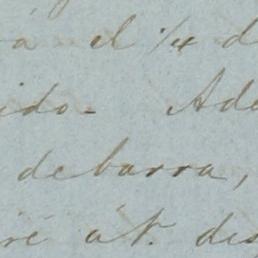 a el 1/4 d
ido. Ade
debarra,
ré á V. des